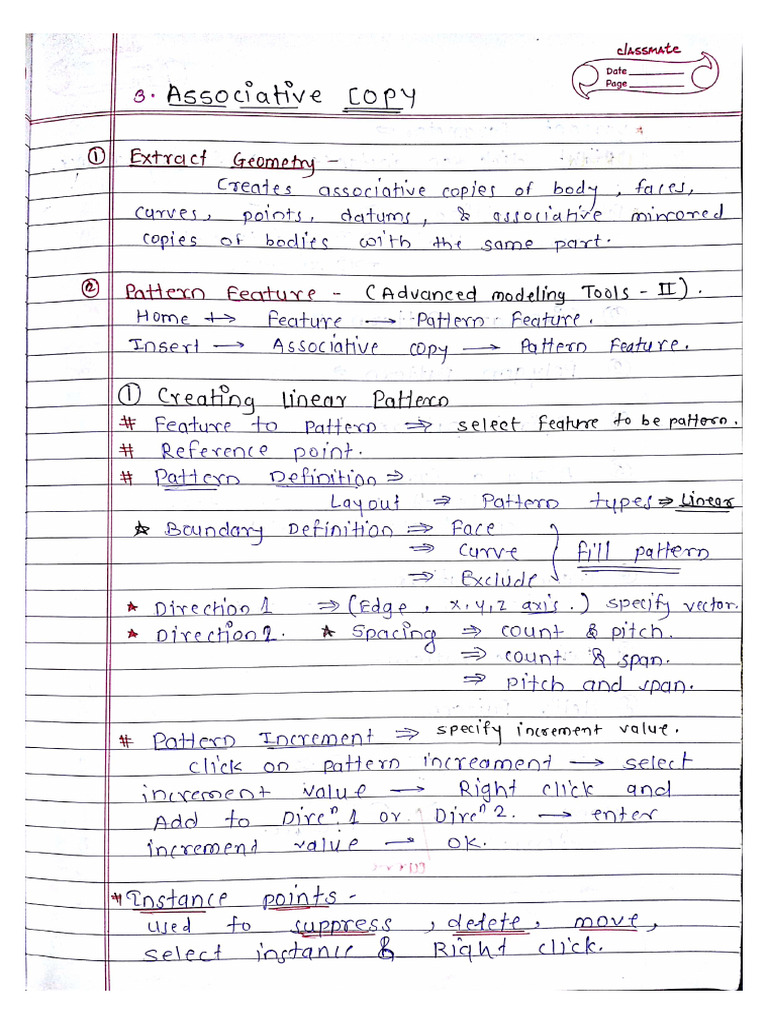 classmate
Date
Page
3. Associative Copy
① Extract Geometry -
Creates associative copies of body, faces,
curves, points, datums, & associative mirrored
copies of bodies with the same part.
② Pattern Feature - (Advanced modeling Tools - II).
Home → Feature → Pattern Feature.
Insert → Associative copy → Pattern Feature.
① Creating Linear Pattern
# Feature to Pattern ⇒ select feature to be pattern.
# Reference point.
# Pattern Definition ⇒
Layout ⇒ Pattern types ⇒ Linear
* Boundary Definition ⇒ Face
⇒ Curve } fill pattern
⇒ Exclude
* Direction 1 ⇒ (Edge, x,y,z axis.) specify vector.
* Direction 2. * Spacing ⇒ count & pitch.
⇒ count & span.
⇒ pitch and span.
# Pattern Increment ⇒ specify increment value.
click on pattern increament → select
increment value → Right click and
Add to Dircⁿ 1 or Dircⁿ 2. → enter
increment value → OK.
* Instance points -
used to suppress, delete, move,
select instance & Right click.